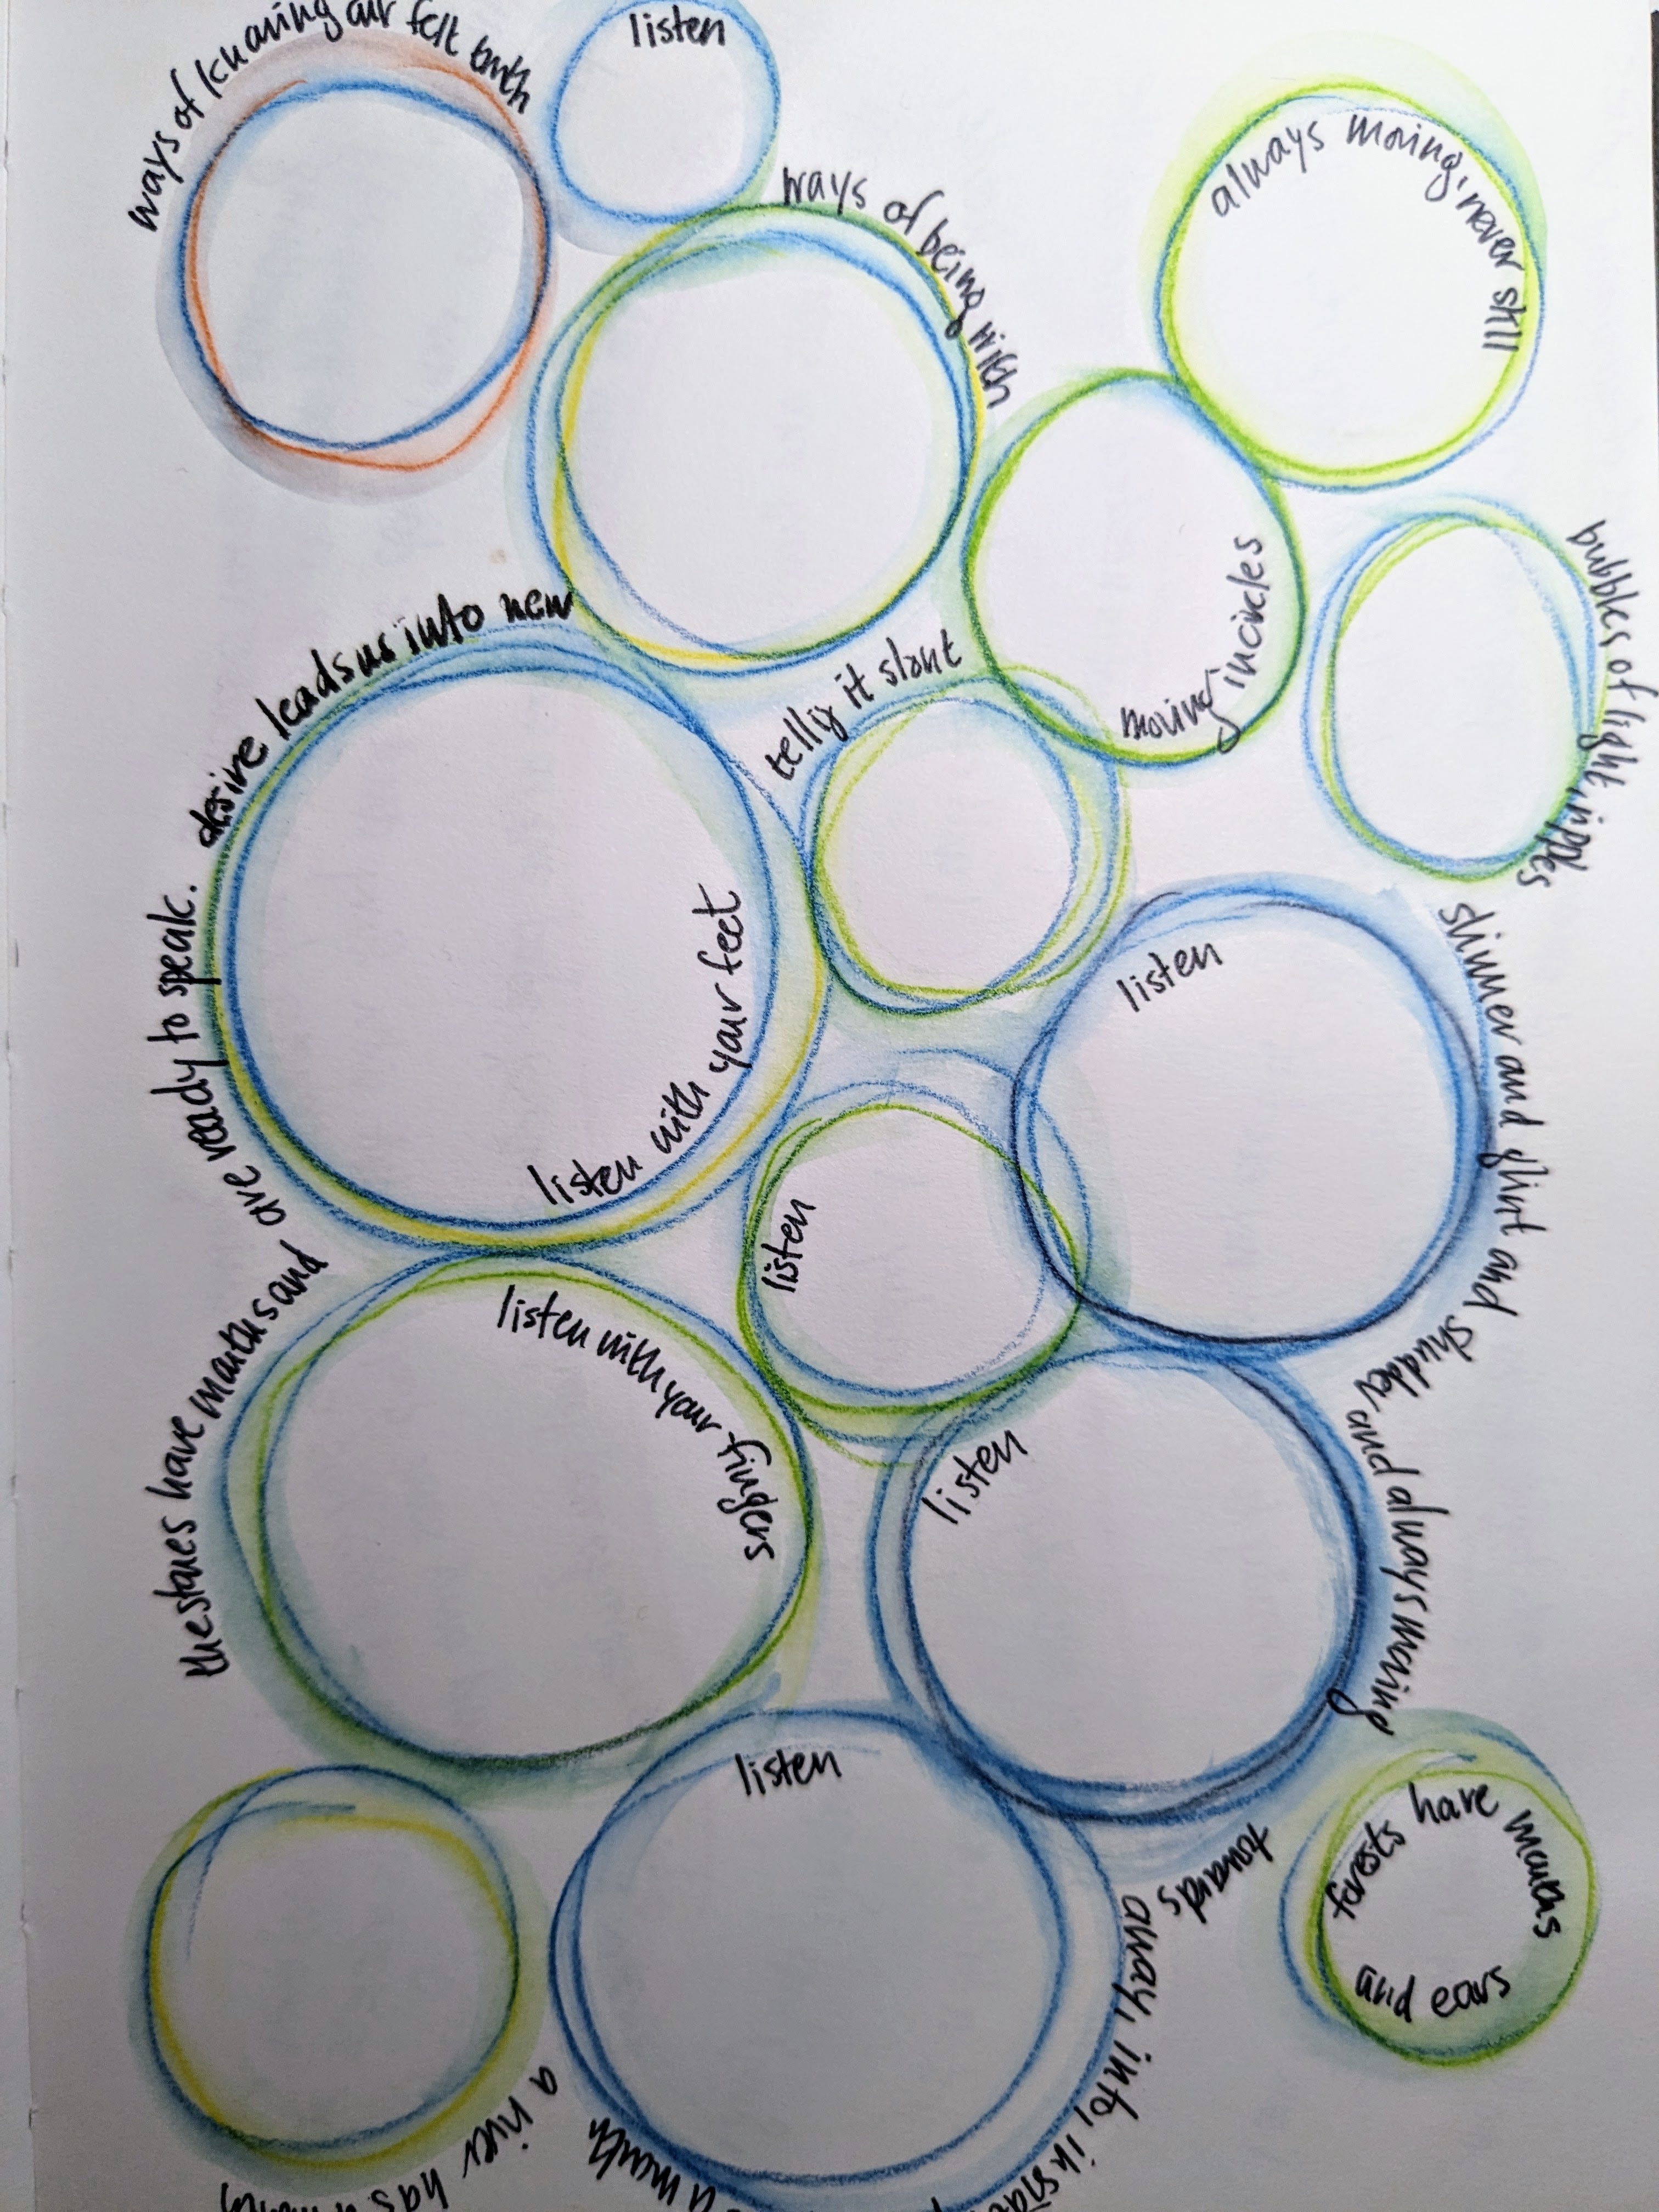 ways of knowing our felt truth
listen
ways of being with
always moving, never still
moving in circles
bubbles of light, ripples
telling it slant
desire leads us into new
listen with your feet
listen
shimmer and glint and shudder and always moving
listen
the stones have mouths and are ready to speak.
listen with your fingers
listen
listen
towards
away, into, inside
forests have mouths
and ears
a river has a mouth
a mouth